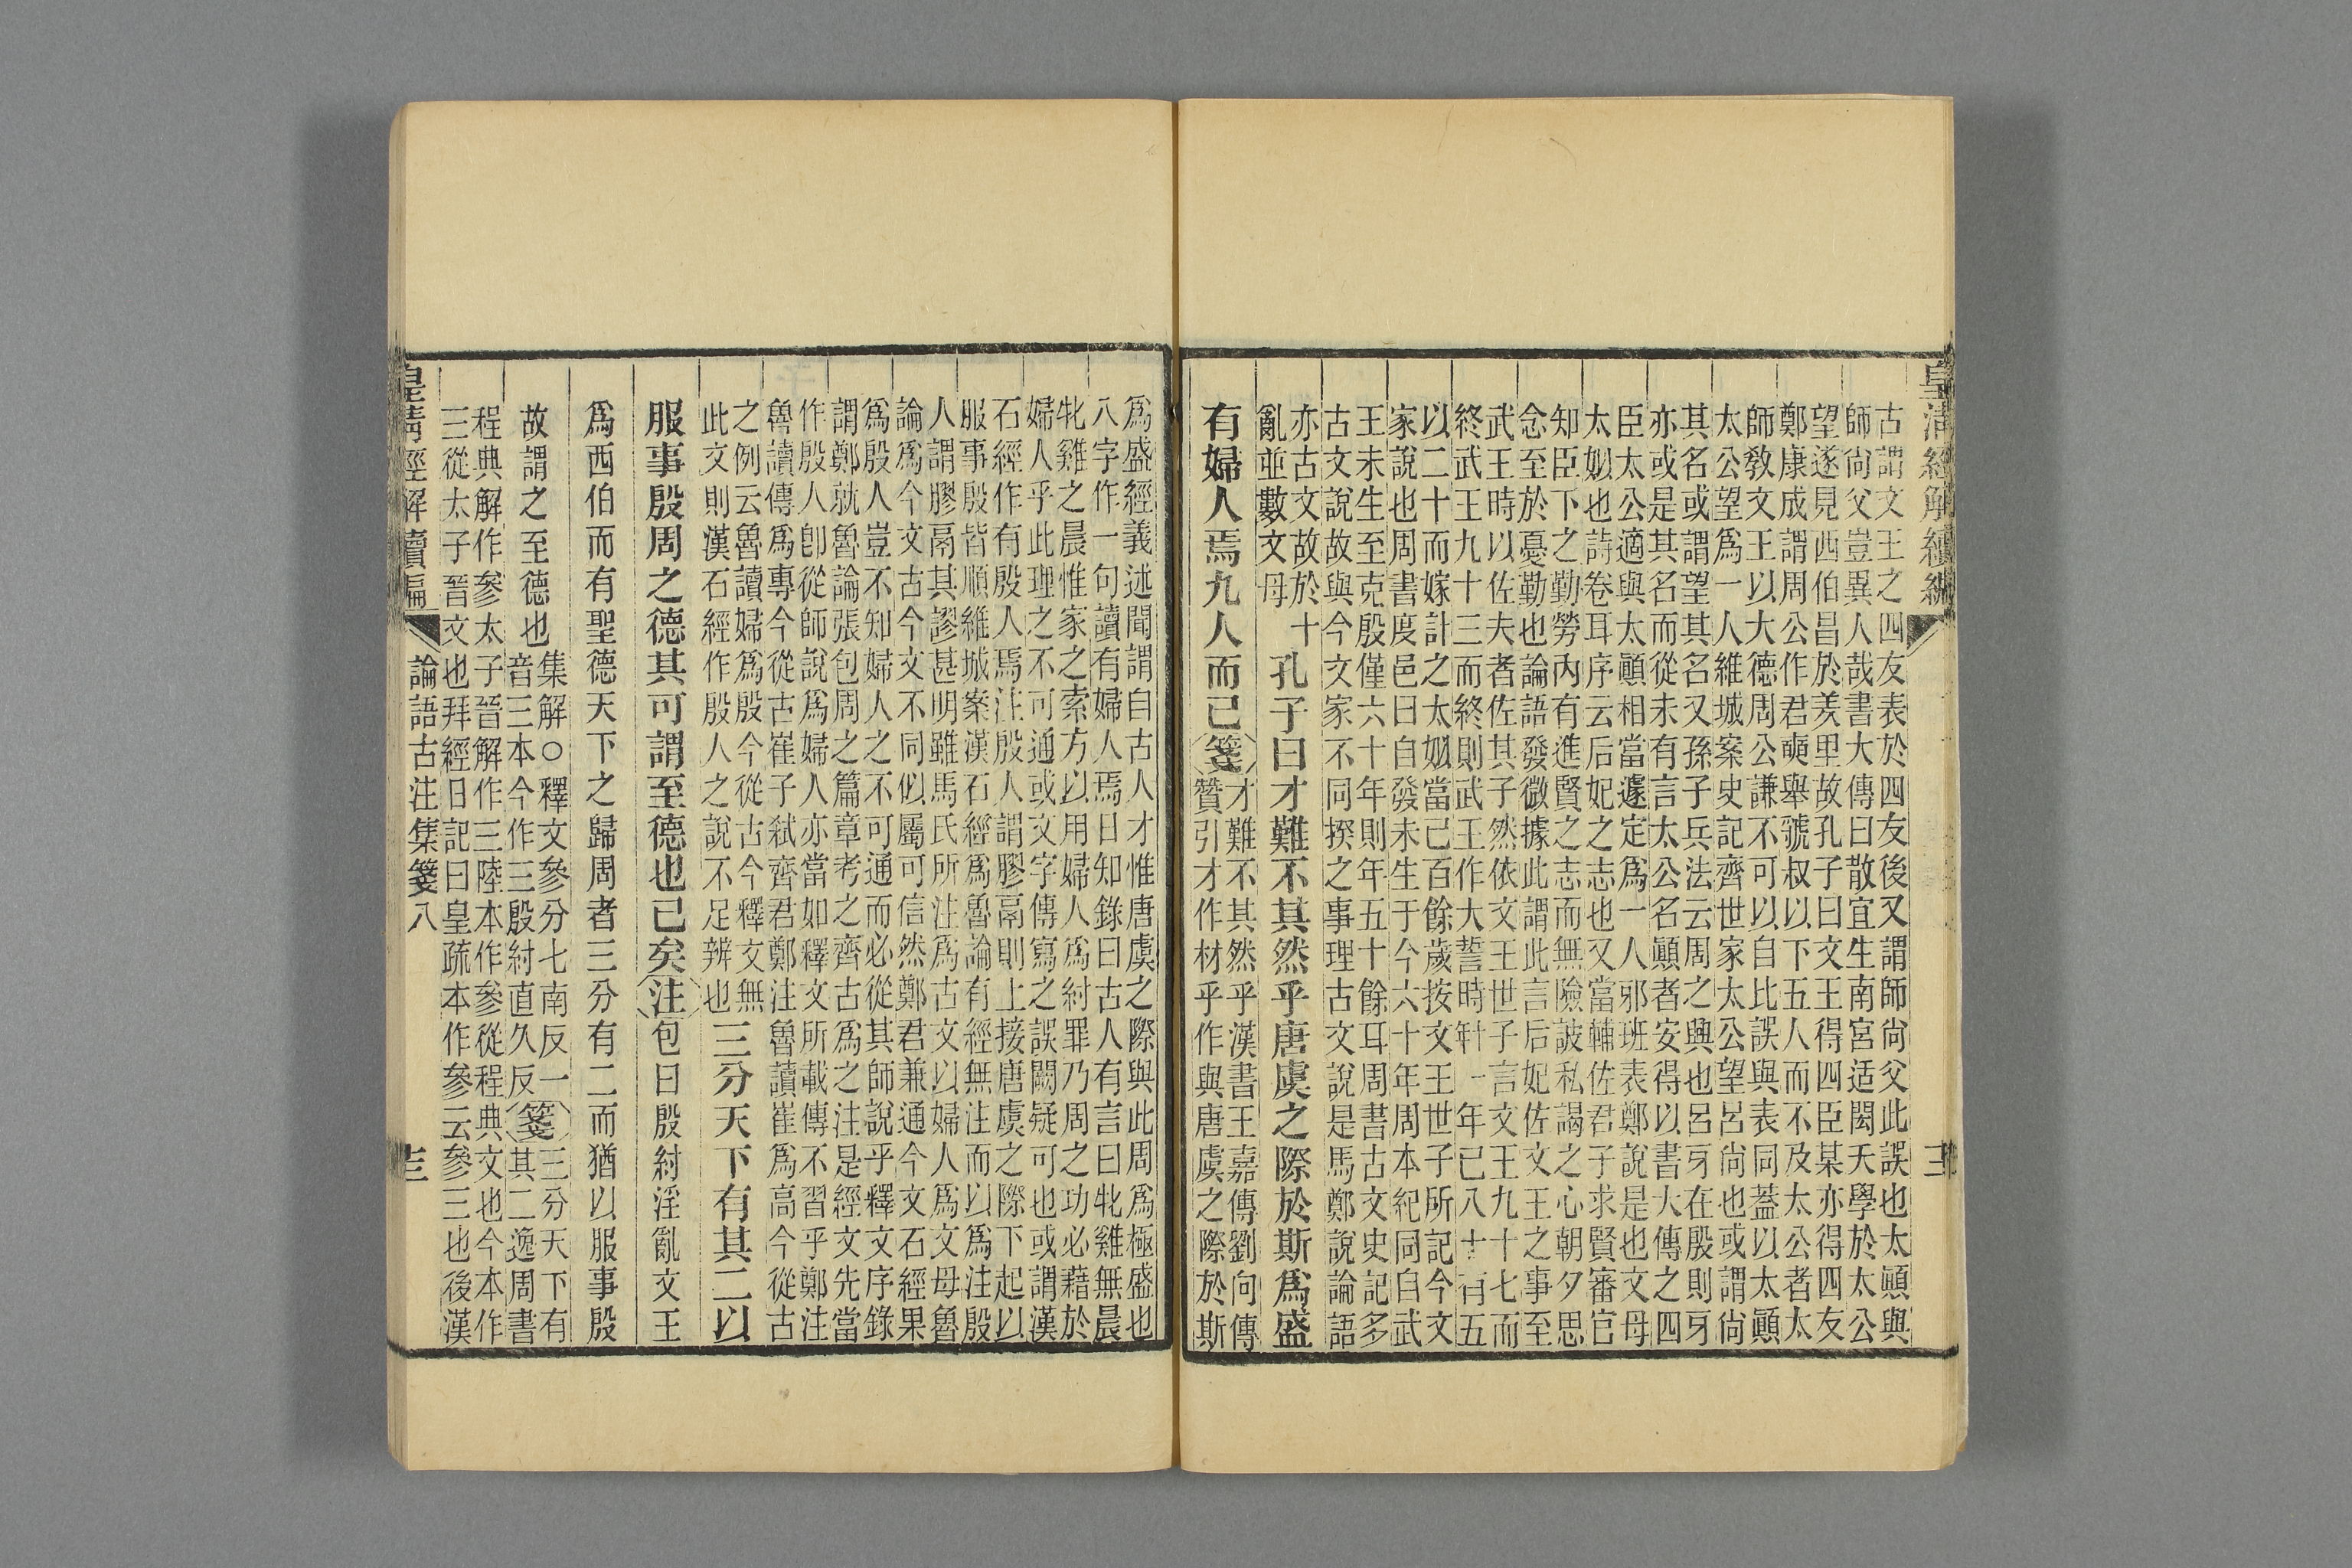 皇清經解續編
三
古謂文王之四友表於四友後又謂師尙父此誤也太顚與
師尙父豈異人哉書大傳曰散宜生南宮适閎夭學於太公
望遂見西伯昌於羑里故孔子曰文王得四臣某亦得四友
鄭康成謂周公作君奭舉虢叔以下五人而不及太公者太
師敎文王以大德周公謙不可以自比誤與表同蓋以太顚
太公望爲一人維城案史記齊世家太公望呂尙也或謂尙
其名或謂望其名又孫子兵法云周之興也呂牙在殷則牙
亦或是其名而從未有言太公名顚者安得以書大傳之四
臣太公適與太顚相當遽定爲一人邪班表鄭說是也文母
太姒也詩卷耳序云后妃之志也又當輔佐君子求賢審官
知臣下之勤勞內有進賢之志而無險詖私謁之心朝夕思
念至於憂勤也論語發微據此謂此言后妃佐文王之事至
武王時以佐夫者佐其子然依文王世子言文王九十七而
終武王九十三而終則武王作大誓時一年已八十有五
以二十而嫁計之太姒當己百餘歲按文王世子所記今文
家說也周書度邑曰自發未生于今六十年周本紀同自武
王未生至克殷僅六十年則年五十餘耳周書古文史記多
古文說故與今文家不同揆之事理古文說是馬鄭說論語
亦古文故於十
亂並數文母
孔子曰才難不其然乎唐虞之際於斯爲盛
有婦人焉九人而已箋
才難不其然乎漢書王嘉傳劉向傳
贊引才作材乎作與唐虞之際於斯
爲盛經義述聞謂自古人才惟唐虞之際與此周爲極盛也
八字作一句讀有婦人焉日知錄曰古人有言曰牝雞無晨
牝雞之晨惟家之索方以用婦人爲紂罪乃周之功必藉於
婦人乎此理之不可通或文字傳寫之誤闕疑可也或謂漢
石經作有殷人焉注殷人謂膠鬲則上接唐虞之際下起以
服事殷皆順維城案漢石經爲魯論有經無注而以爲注殷
人謂膠鬲其謬甚明雖馬氏所注爲古文以婦人爲文母魯
論爲今文古今文不同似屬可信然鄭君兼通今文石經果
爲殷人豈不知婦人之不可通而必從其師說乎釋文序錄
謂鄭就魯論張包周之篇章考之齊古爲之注是經文先當
作殷人卽從師說爲婦人亦當如釋文所載傳不習乎鄭注
魯讀傳爲專今從古崔子弒齊君鄭注魯讀崔爲高今從古
之例云魯讀婦爲殷今從古今釋文無
此文則漢石經作殷人之說不足辨也
三分天下有其二以
服事殷周之德其可謂至德也已矣注包曰殷紂淫亂文王
爲西伯而有聖德天下之歸周者三分有二而猶以服事殷
故謂之至德也
集解○釋文參分七南反一
音三本今作三殷紂直久反
箋
三分天下有
其二逸周書
程典解作參太子晉解作三陸本作參從程典文也今本作
三從太子晉文也拜經日記曰皇疏本作參云參三也後漢
皇淸經解續編
論語古注集箋八